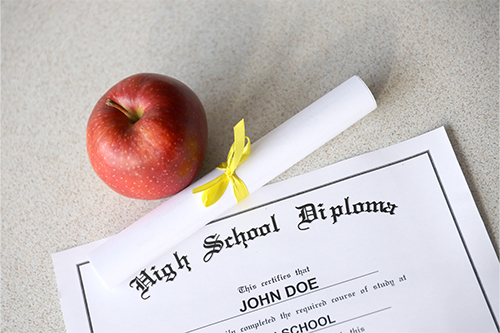 High School Diploma
This certifies that
JOHN DOE
completed the required course of study at
SCHOOL
this